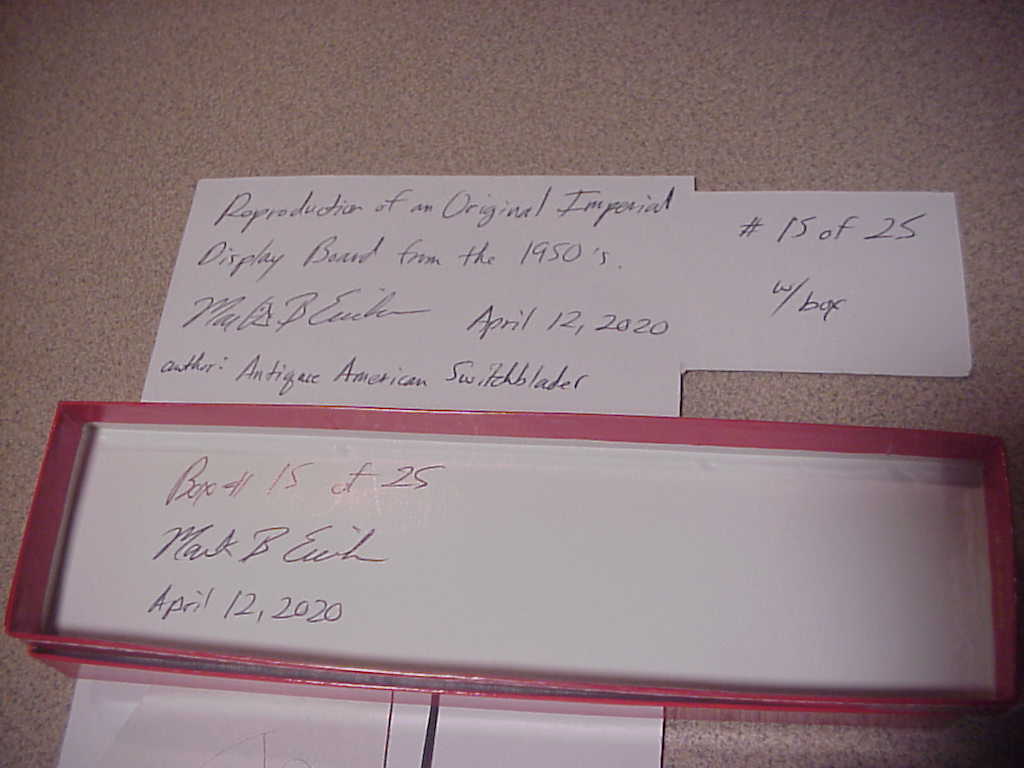 Reproduction of an Original Imperial
Display Board from the 1950's.
Mark B Erickson
April 12, 2020
author: Antique American Switchblades
# 15 of 25
w/box
Box # 15 of 25
Mark B Erickson
April 12, 2020